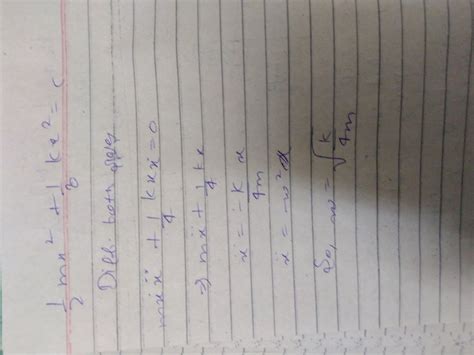 1/2 mẋ² + 1/8 kx² = C
Diff. both sides
mẋẍ + 1/4 kxẋ = 0
⇒ mẍ + 1/4 kx
ẍ = -k/4m x
ẍ = -ω²x
So, ω = √(k/4m)